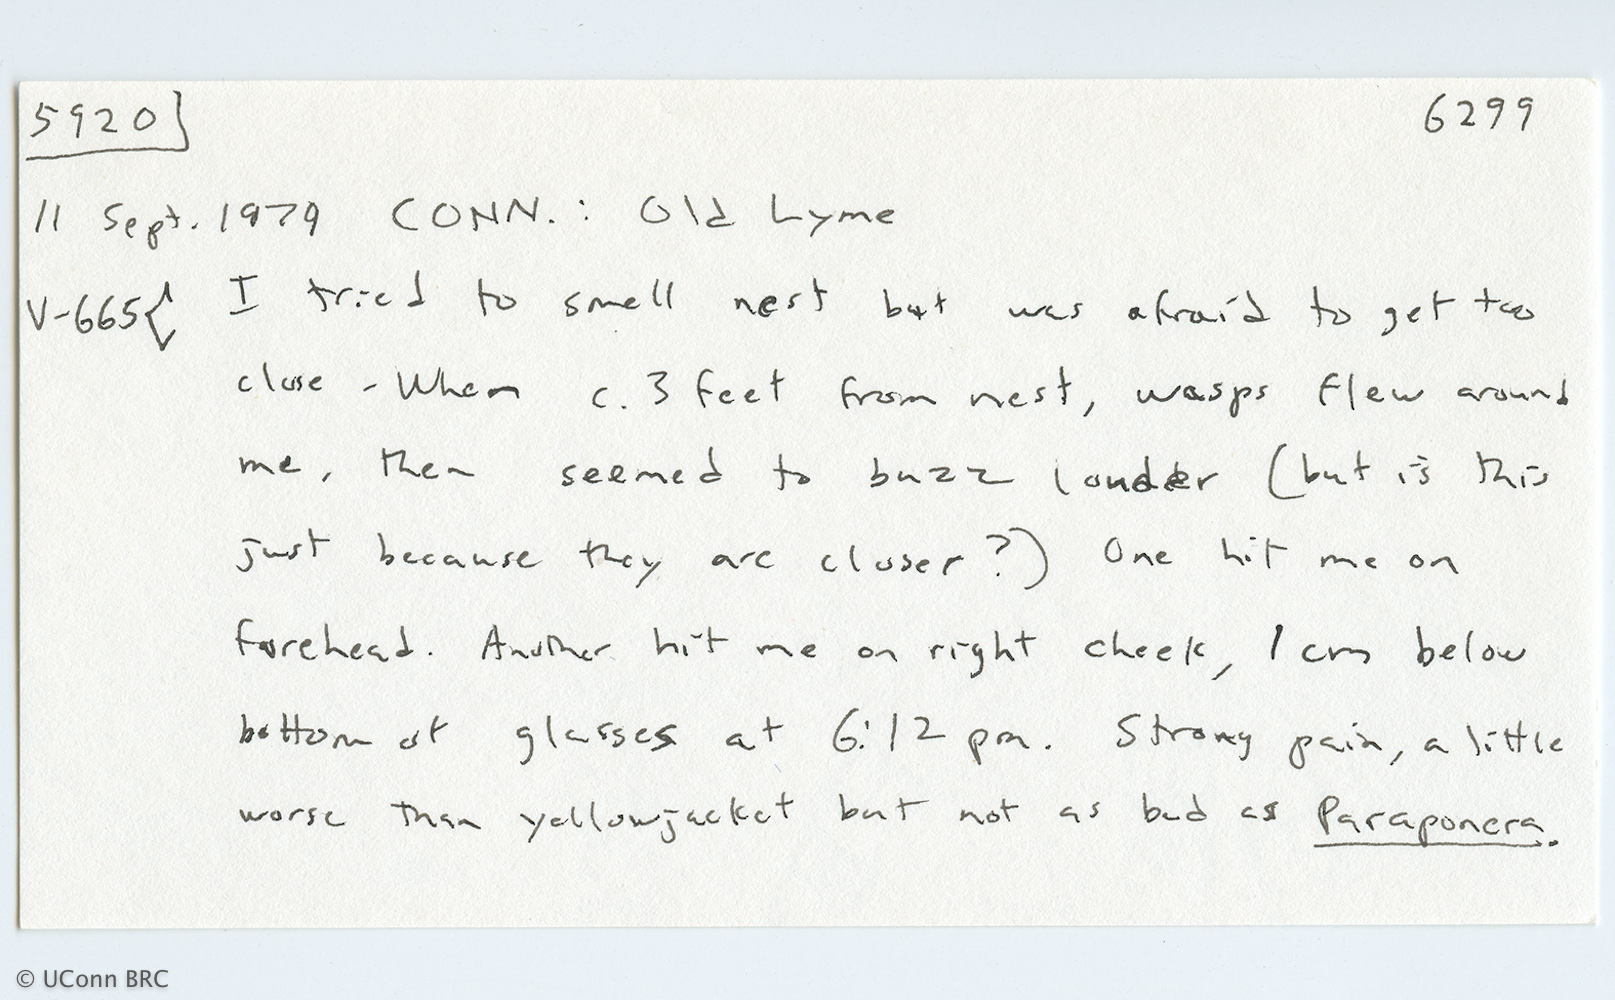 5920] 6299
11 Sept. 1979 CONN.: Old Lyme
V-665{ I tried to smell nest but was afraid to get too
close - When c. 3 feet from nest, wasps flew around
me, then seemed to buzz louder (but is this
just because they are closer?) One hit me on
forehead. Another hit me on right cheek, 1 cm below
bottom of glasses at 6:12 pm. Strong pain, a little
worse than yellowjacket but not as bad as Paraponera.
© UConn BRC